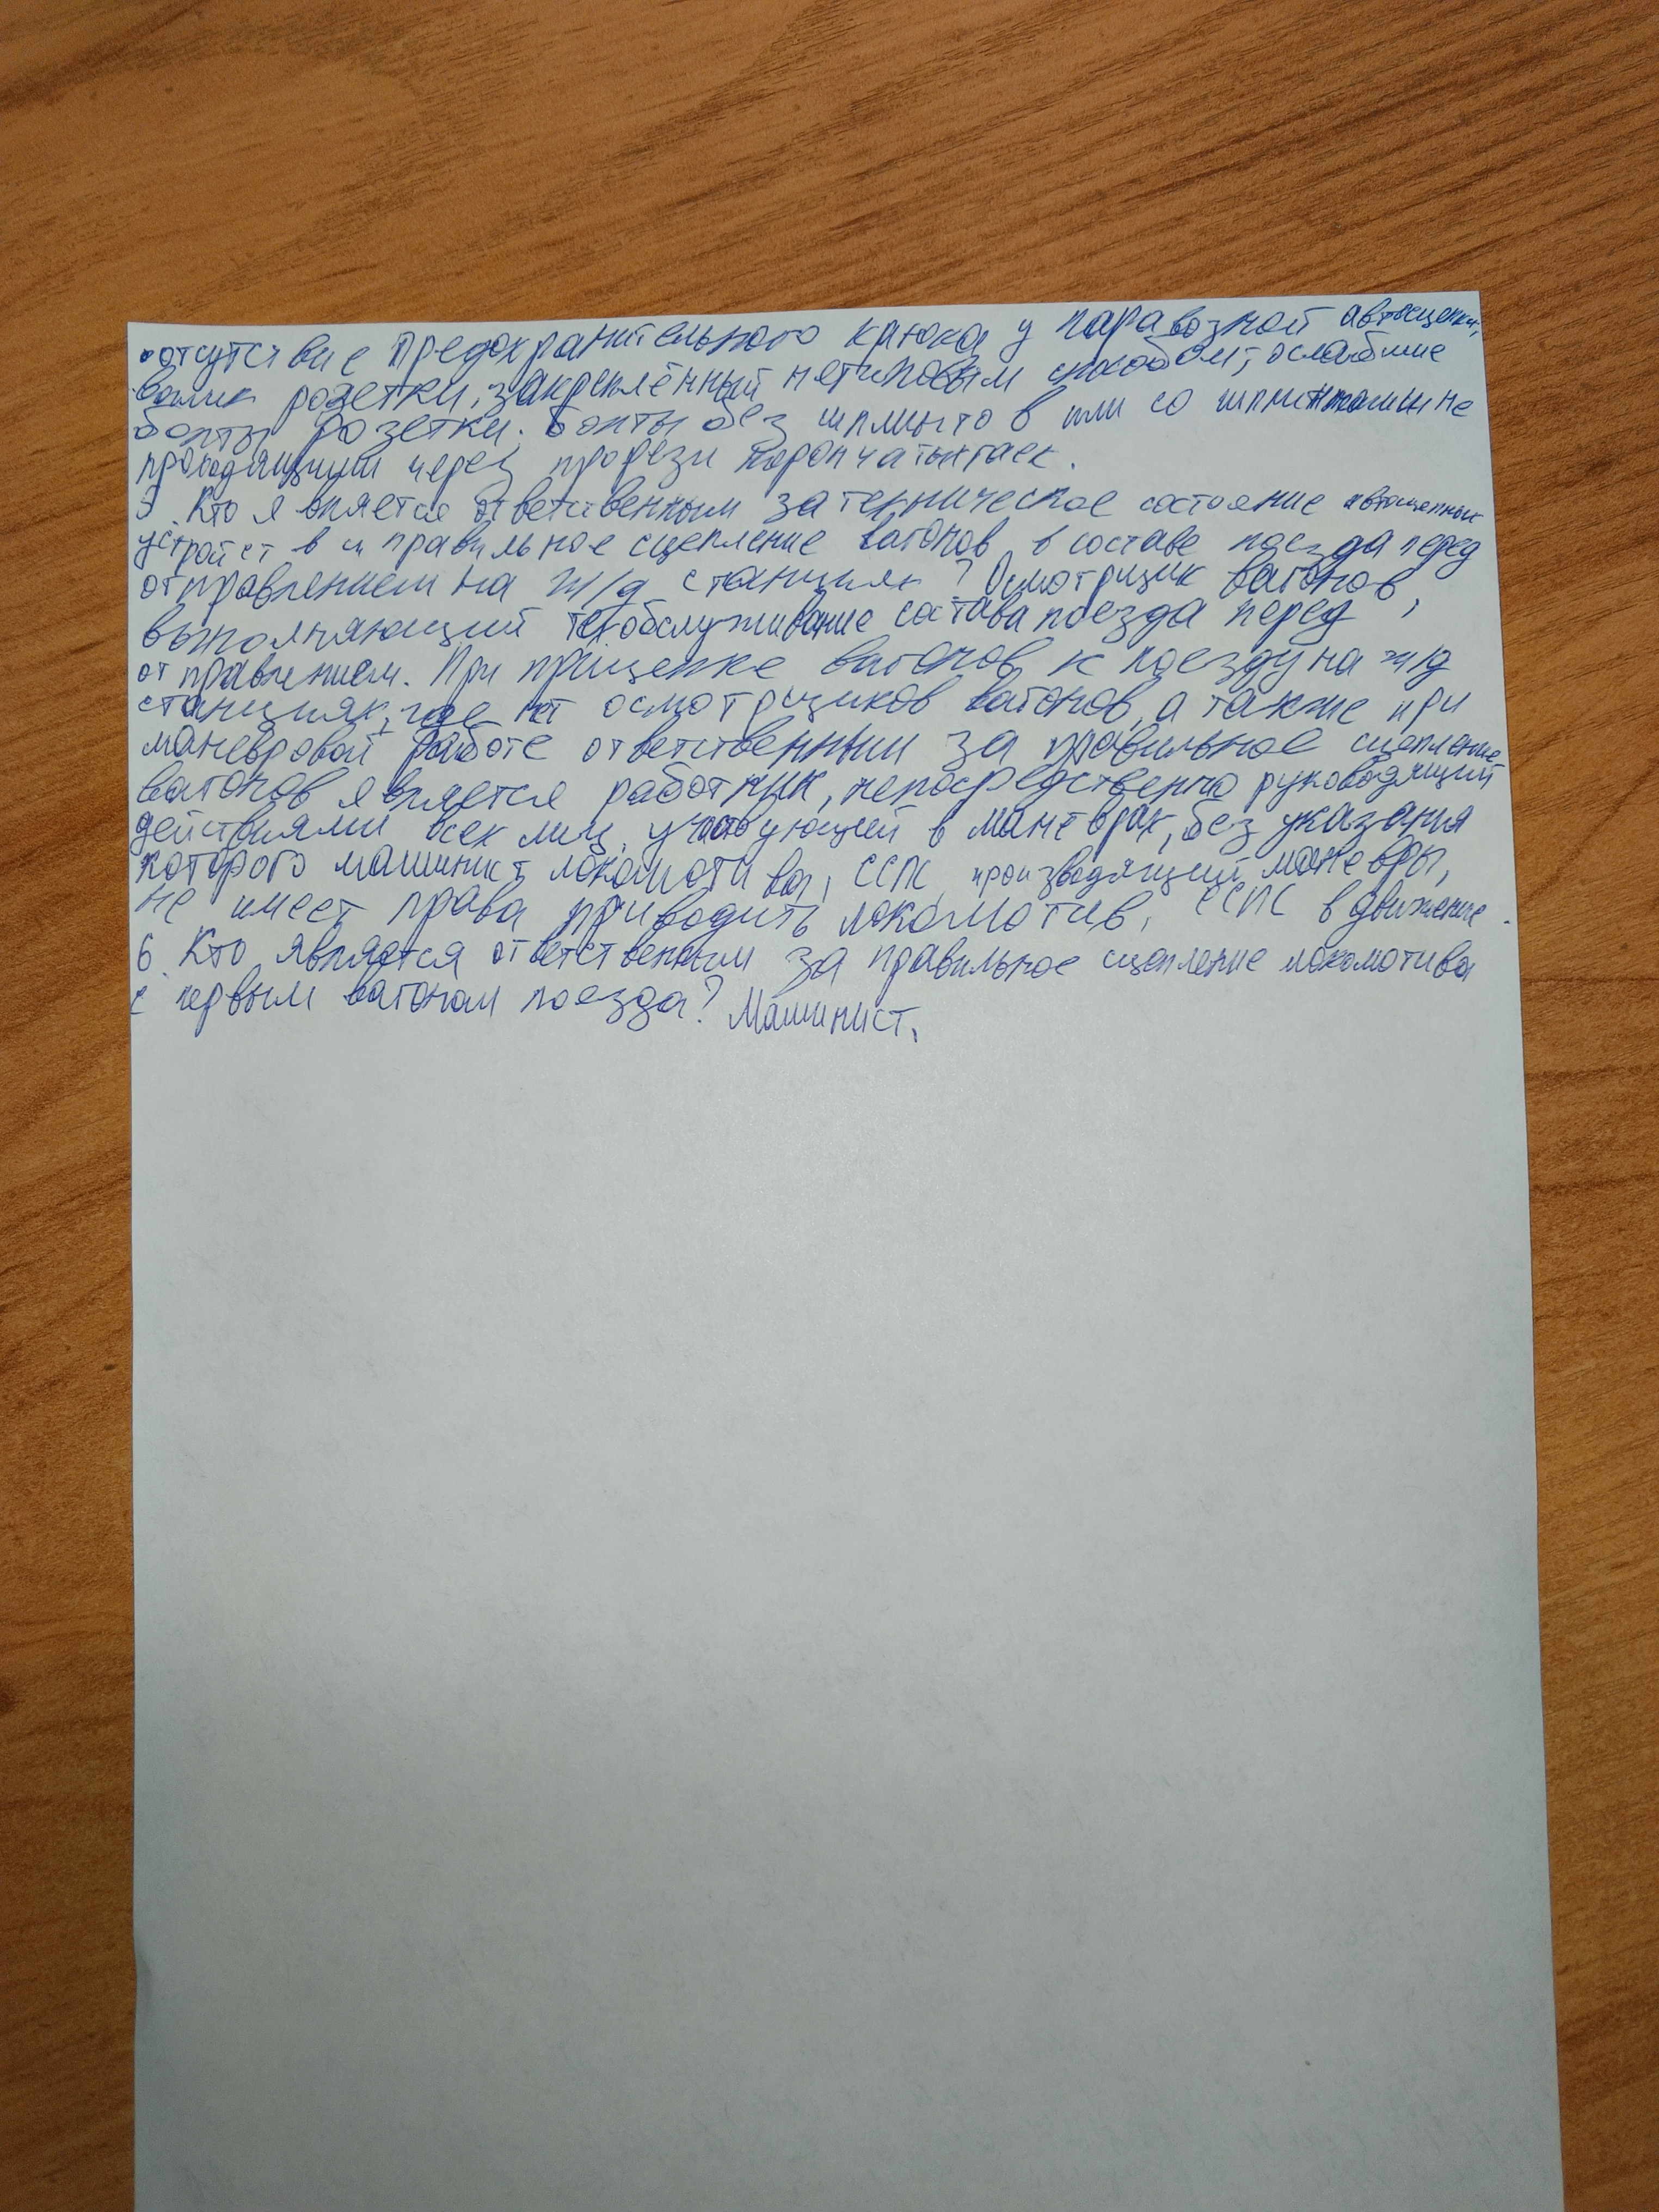 • отсутствие предохранительного крюка у паравозной автосцепки,
валик розетки, закреплённый нетиповым способом, ослабшие
болты розетки. болты без шплинтов или со шплинтами не
проходящими через прорези корончатых гаек.
5. Кто является ответственным за техническое состояние автосцепных
устройств и правильное сцепление вагонов в составе поезда перед
отправлением на ж/д станциях? Осмотрщик вагонов,
выполняющий техобслуживание состава поезда перед
отправлением. При прицепке вагонов к поезду на ж/д
станциях, где нет осмотрщиков вагонов, а также при
маневровой работе ответственным за правильное сцепление
вагонов является работник, непосредственно руководящий
действиями всех лиц, участвующей в маневрах, без указания
которого машинист локомотива, ССПС, производящий маневры,
не имеет права приводить локомотив, ССПС в движение.
6. Кто является ответственным за правильное сцепление локомотива
с первым вагоном поезда? Машинист.